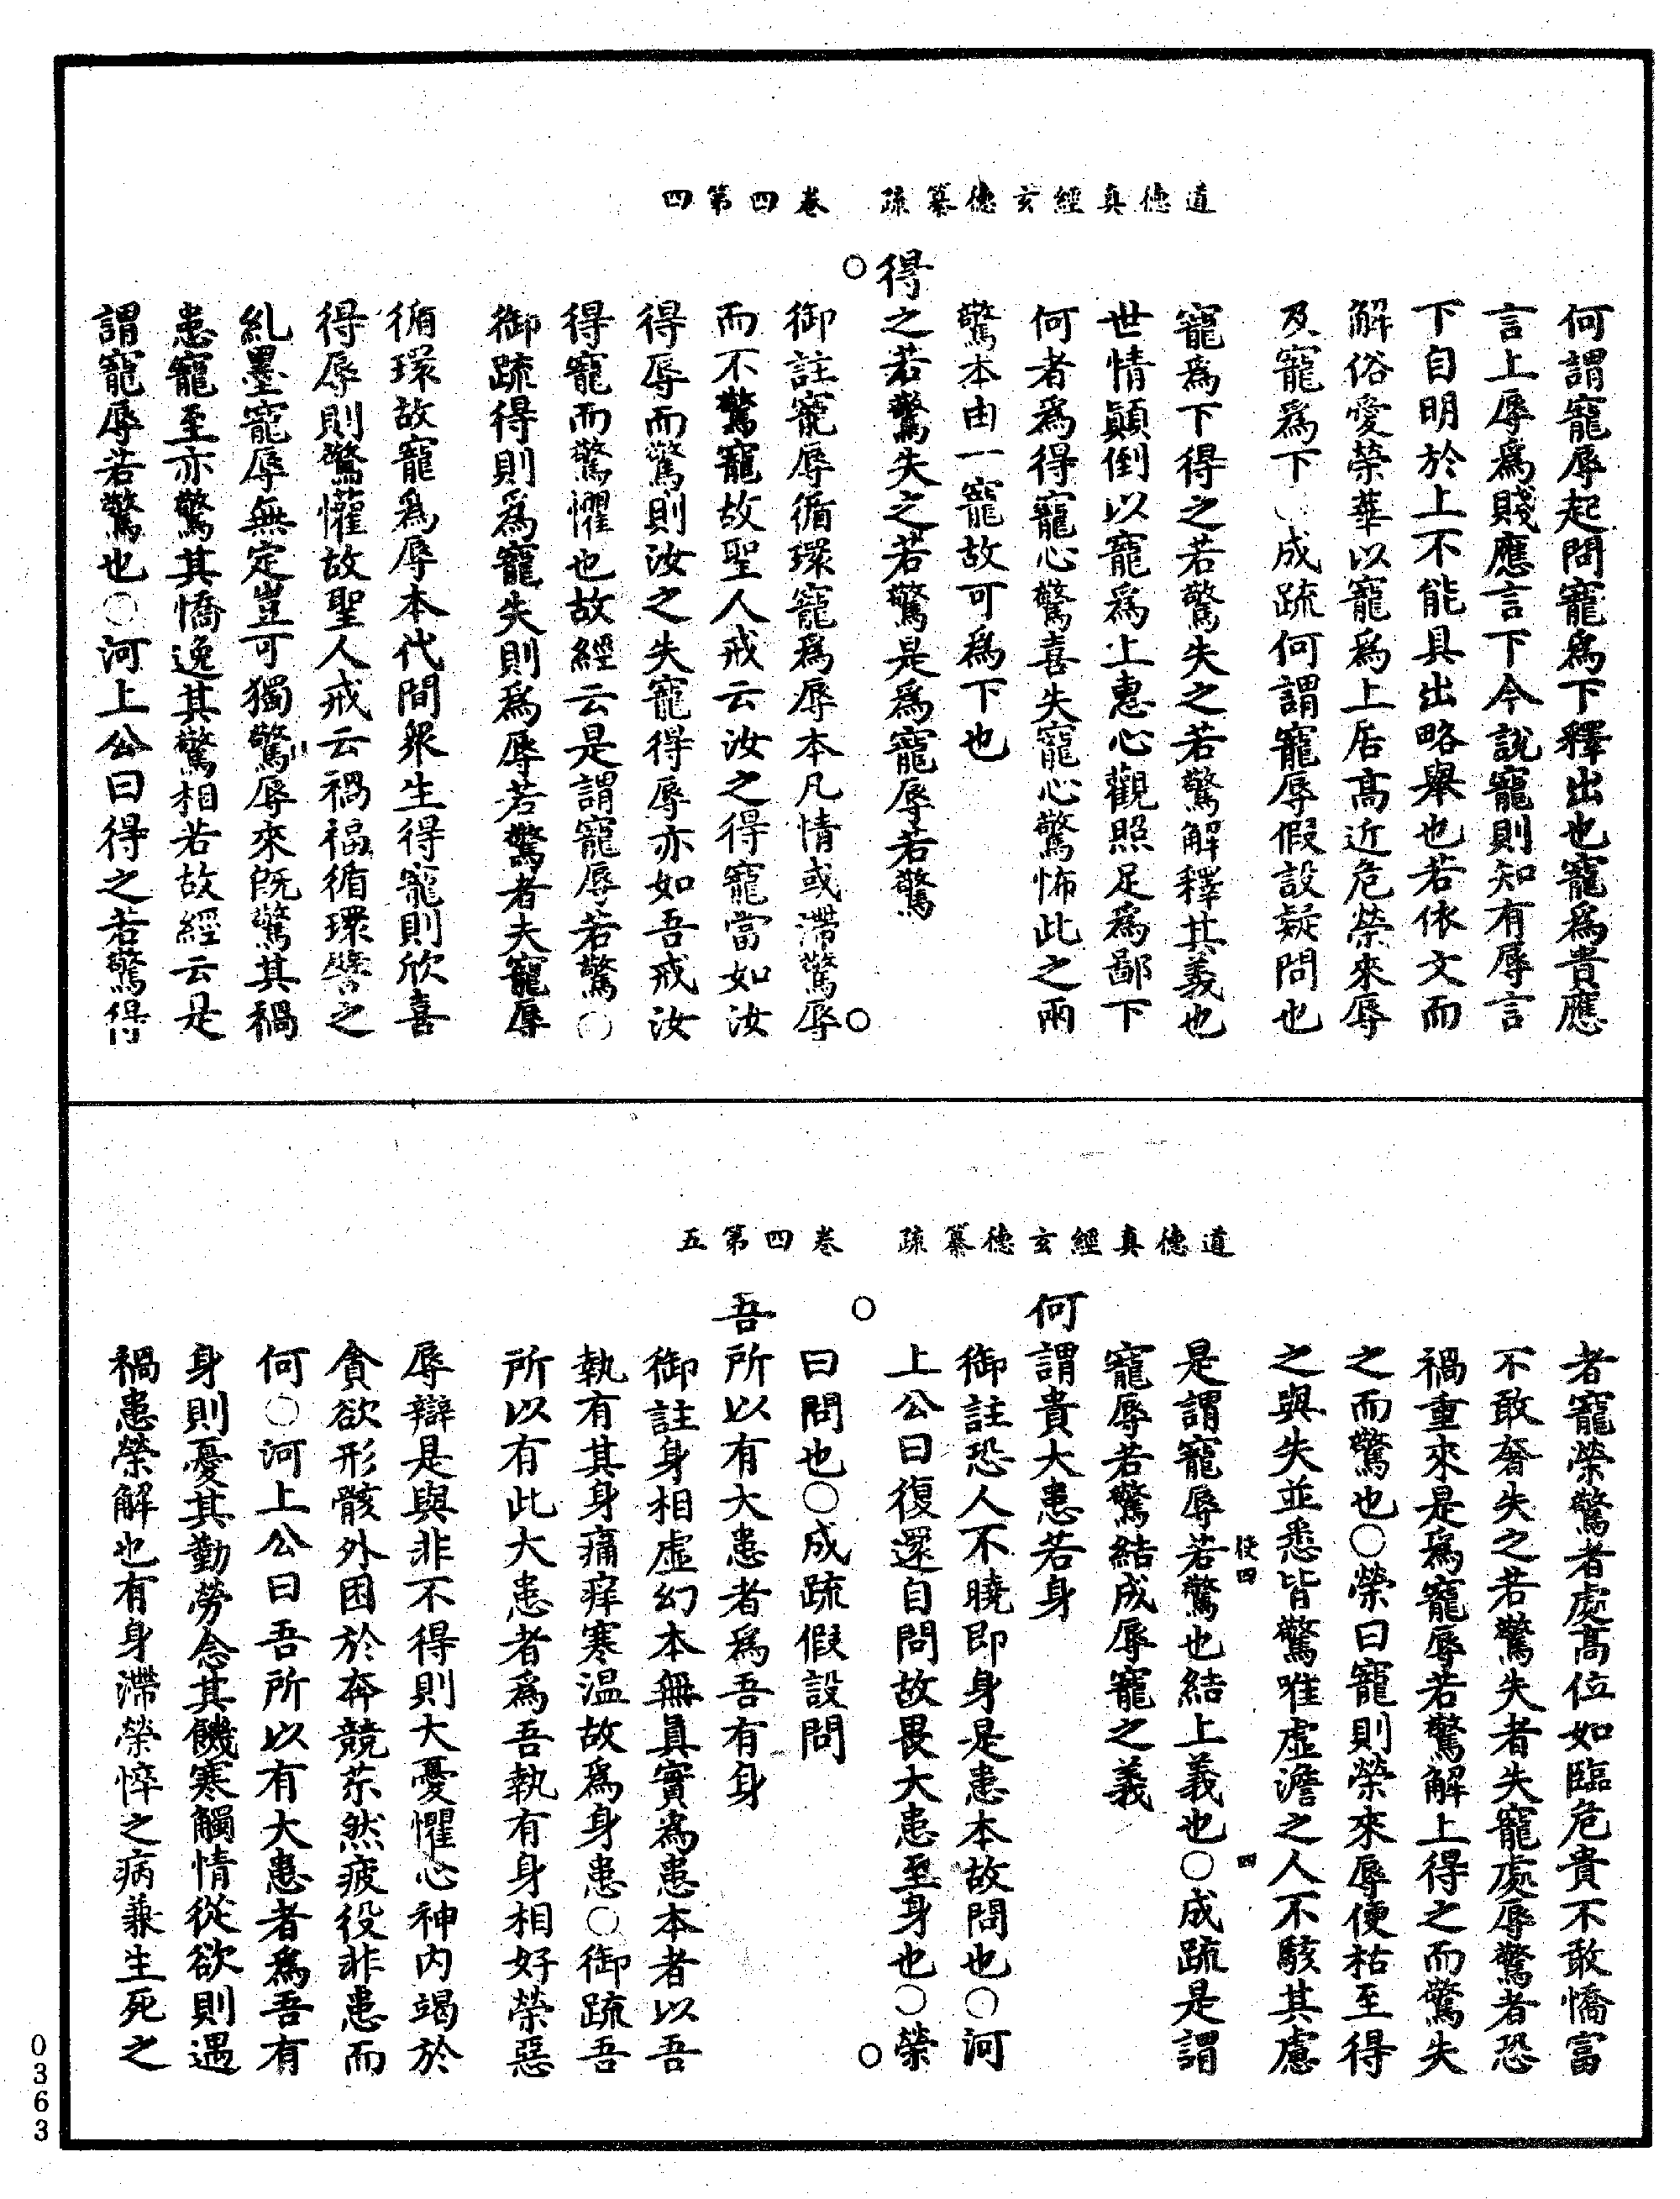 道德真經玄德纂疏　卷四第四
何謂寵辱起問寵爲下釋出也寵爲貴應
言上辱爲賤應言下今說寵則知有辱言
下自明於上不能具出略舉也若依文而
解俗愛榮華以寵爲上居高近危榮來辱
及寵爲下○成疏何謂寵辱假設疑問也
寵爲下得之若驚失之若驚解釋其義也
世情顛倒以寵爲上惠心觀照足爲鄙下
何者爲得寵心驚喜失寵心驚怖此之兩
驚本由一寵故可爲下也
得之若驚失之若驚是爲寵辱若驚
御註寵辱循環寵爲辱本凡情或滯驚辱
而不驚寵故聖人戒云汝之得寵當如汝
得辱而驚則汝之失寵得辱亦如吾戒汝
得寵而驚懼也故經云是謂寵辱若驚○
御疏得則爲寵失則爲辱若驚者夫寵辱
循環故寵爲辱本代間衆生得寵則欣喜
得辱則驚懼故聖人戒云禍福循環譬之
糺墨寵辱無定豈可獨驚辱來旣驚其禍
患寵至亦驚其憍逸其驚相若故經云是
謂寵辱若驚也○河上公曰得之若驚得
道德真經玄德纂疏　卷四第五
者寵榮驚者處高位如臨危貴不敢憍富
不敢奢失之若驚失者失寵處辱驚者恐
禍重來是爲寵辱若驚解上得之而驚失
之而驚也○榮曰寵則榮來辱便枯至得
之與失並悉皆驚唯虛澹之人不駭其慮
使四　四
是謂寵辱若驚也結上義也○成疏是謂
寵辱若驚結成辱寵之義
何謂貴大患若身
御註恐人不曉即身是患本故問也○河
上公曰復還自問故畏大患至身也○榮
曰問也○成疏假設問
吾所以有大患者爲吾有身
御註身相虛幻本無真實爲患本者以吾
執有其身痛痒寒温故爲身患○御疏吾
所以有此大患者爲吾執有身相好榮惡
辱辯是與非不得則大憂懼心神內竭於
貪欲形骸外困於奔競苶然疲役非患而
何○河上公曰吾所以有大患者爲吾有
身則憂其勤勞念其饑寒觸情從欲則遇
禍患榮解也有身滯榮悴之病兼生死之
0363